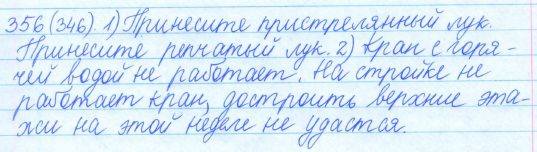 356 (346). 1) Принесите пристрелянный лук.
Принесите репчатый лук. 2) Кран с горя-
чей водой не работает. На стройке не
работает кран, достроить верхние эта-
жи на этой неделе не удастся.